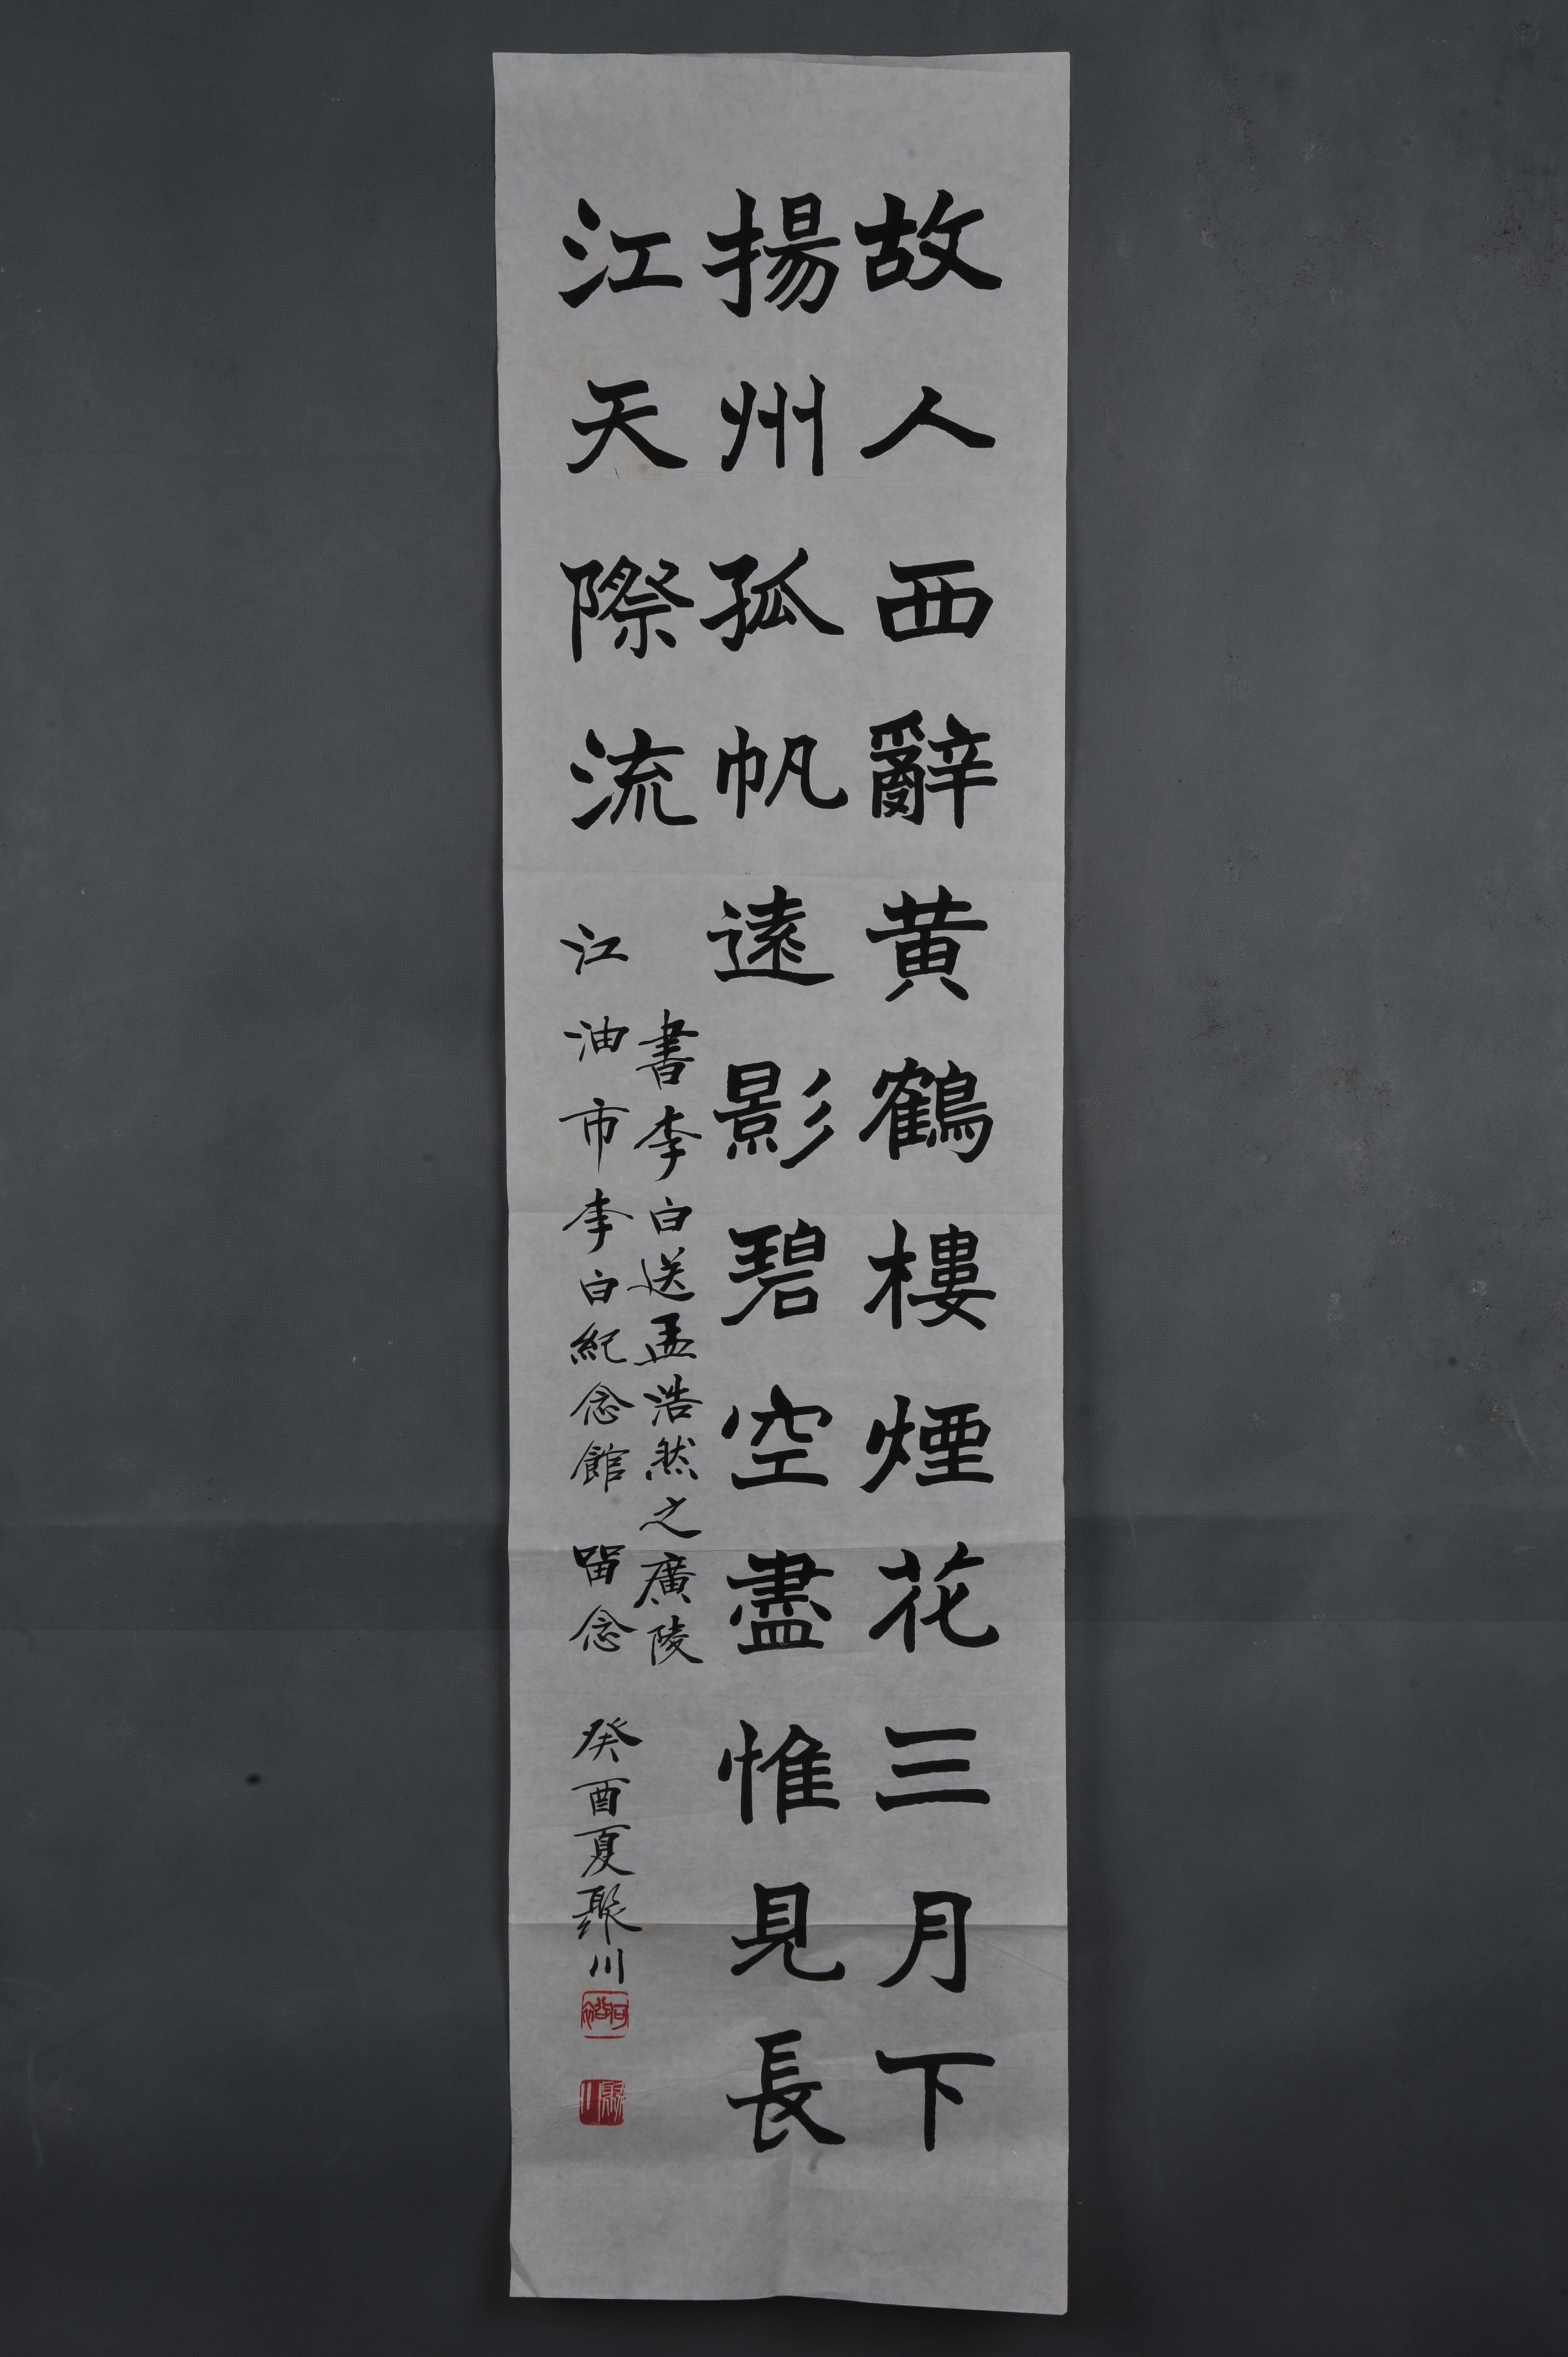 故人西辭黄鶴樓煙花三月下
揚州孤帆遠影碧空盡惟見長
江天際流
書李白送孟浩然之廣陵
江油市李白紀念館 留念 癸酉夏聚川